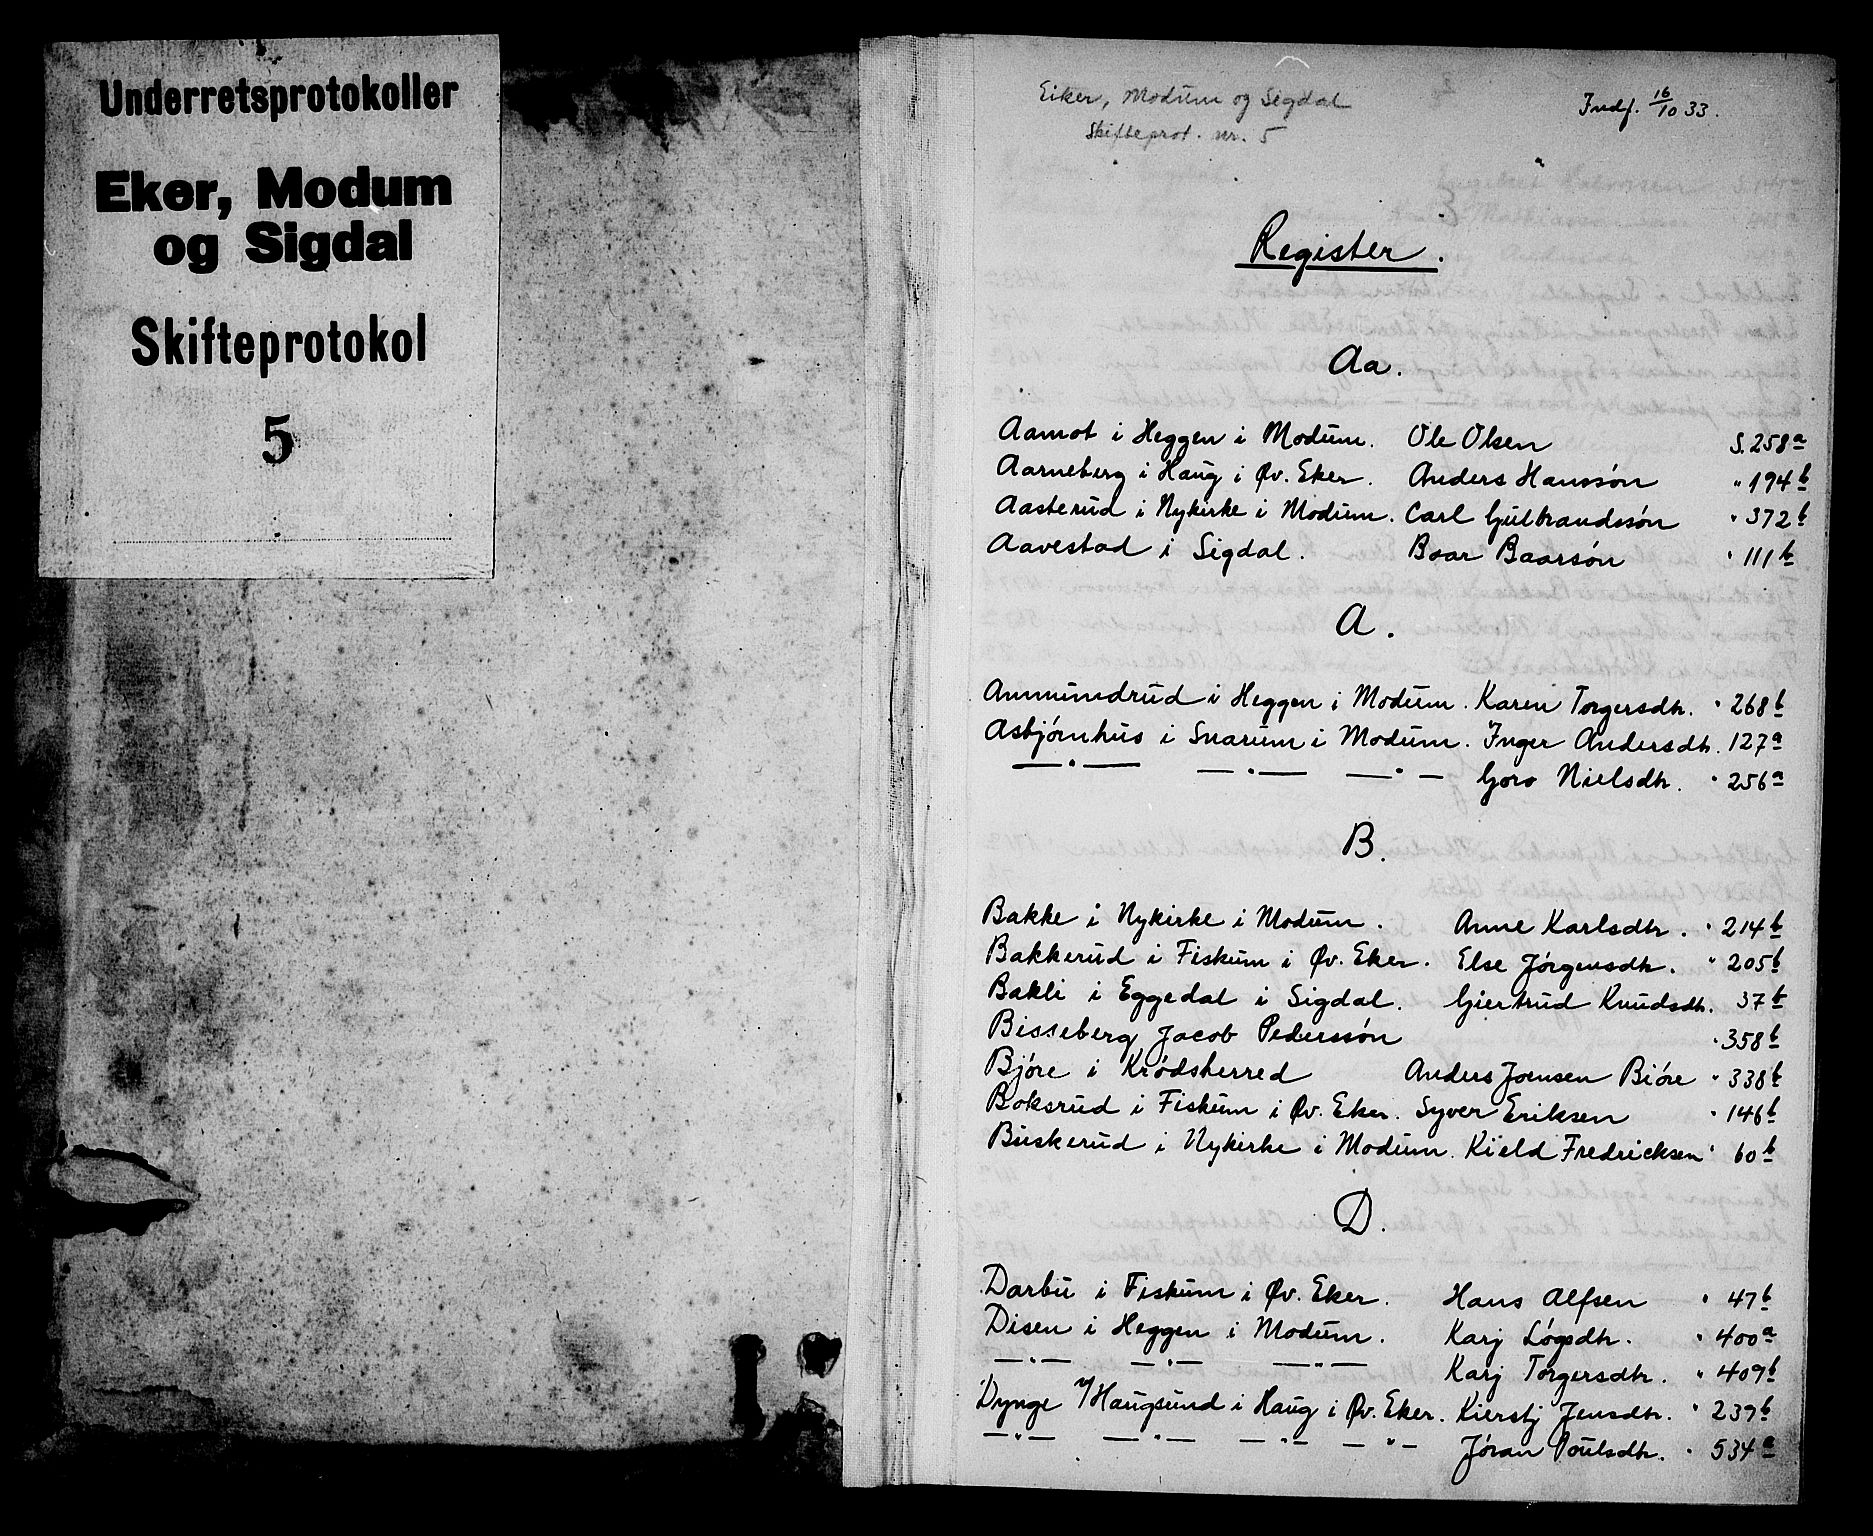 Underretsprotokoller
Eker, Modum
og Sigdal
Skifteprotokol
5
Eiker, Modum og Sigdal
Skifteprot. nr. 5
Indf. 16/10 33.
Register.
Aa.
Aamot i Heggen i Modum. Ole Olsen S. 258a
Aarneberg i Haug i Øv. Eker. Anders Hanssøn " 194b
Aasterud i Nykirke i Modum. Carl Gulbrandssøn " 372b
Aavestad i Sigdal. Boar Baarsøn " 111b
A.
Ammundrud i Heggen i Modum. Karen Torgersdtr. " 268b
Asbjørnhus i Snarum i Modum. Inger Andersdtr. 127a
—"— —"— —"— Goro Nielsdtr. " 256a
B.
Bakke i Nykirke i Modum. Anne Karlsdtr. " 214b
Bakkerud i Fiskum i Øv. Eker. Else Jörgensdtr. " 205b
Bakli i Eggedal i Sigdal. Giertrud Knudsdtr. 37b
Bisseberg Jacob Pederssøn " 358b
Bjøre i Krødsherred Anders Joensen Biöre " 338b
Boksrud i Fiskum i Øv. Eker. Syver Eriksen " 146b
Buskerud i Nykirke i Modum. Kield Fredricksen " 60b
D.
Darbu i Fiskum i Øv. Eker. Hans Alfsen " 47b
Disen i Heggen i Modum. Karj Løgsdtr. " 400a
—"— —"— —"— Karj Torgersdtr. " 409b
Dynge v/Haugsund i Haug i Øv. Eker. Kierstj Jensdtr. " 239b
—"— —"— —"— —"— Jöran Poulsdtr. " 534a